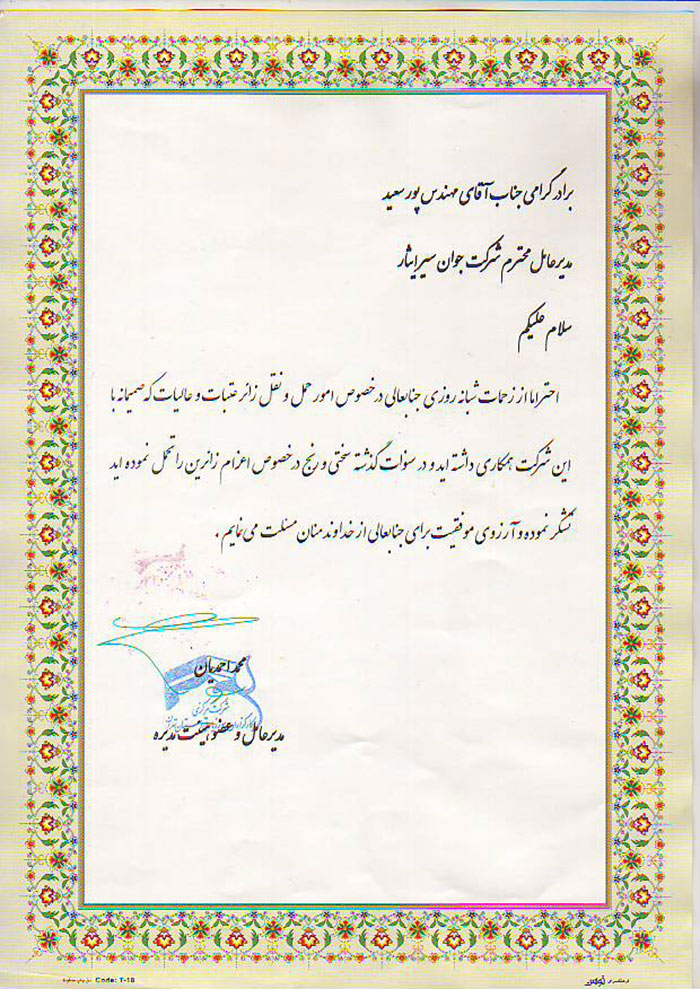 برادر گرامی جناب آقای مهندس پور سعید
مدیرعامل محترم شرکت جوان سیر ایثار
سلام علیکم
احتراما از زحمات شبانه روزی جنابعالی در خصوص امور حمل و نقل زائر عتبات و عالیات که صمیمانه با
این شرکت همکاری داشته اید و در سنوات گذشته سختی و رنج در خصوص اعزام زائرین را تحمل نموده اید
تشکر نموده و آرزوی موفقیت برای جنابعالی از خداوند منان مسئلت می نمایم .
محمد احمدیان
شرکت مرکزی
مدیرعامل و عضو هیئت مدیره
Code: T-18